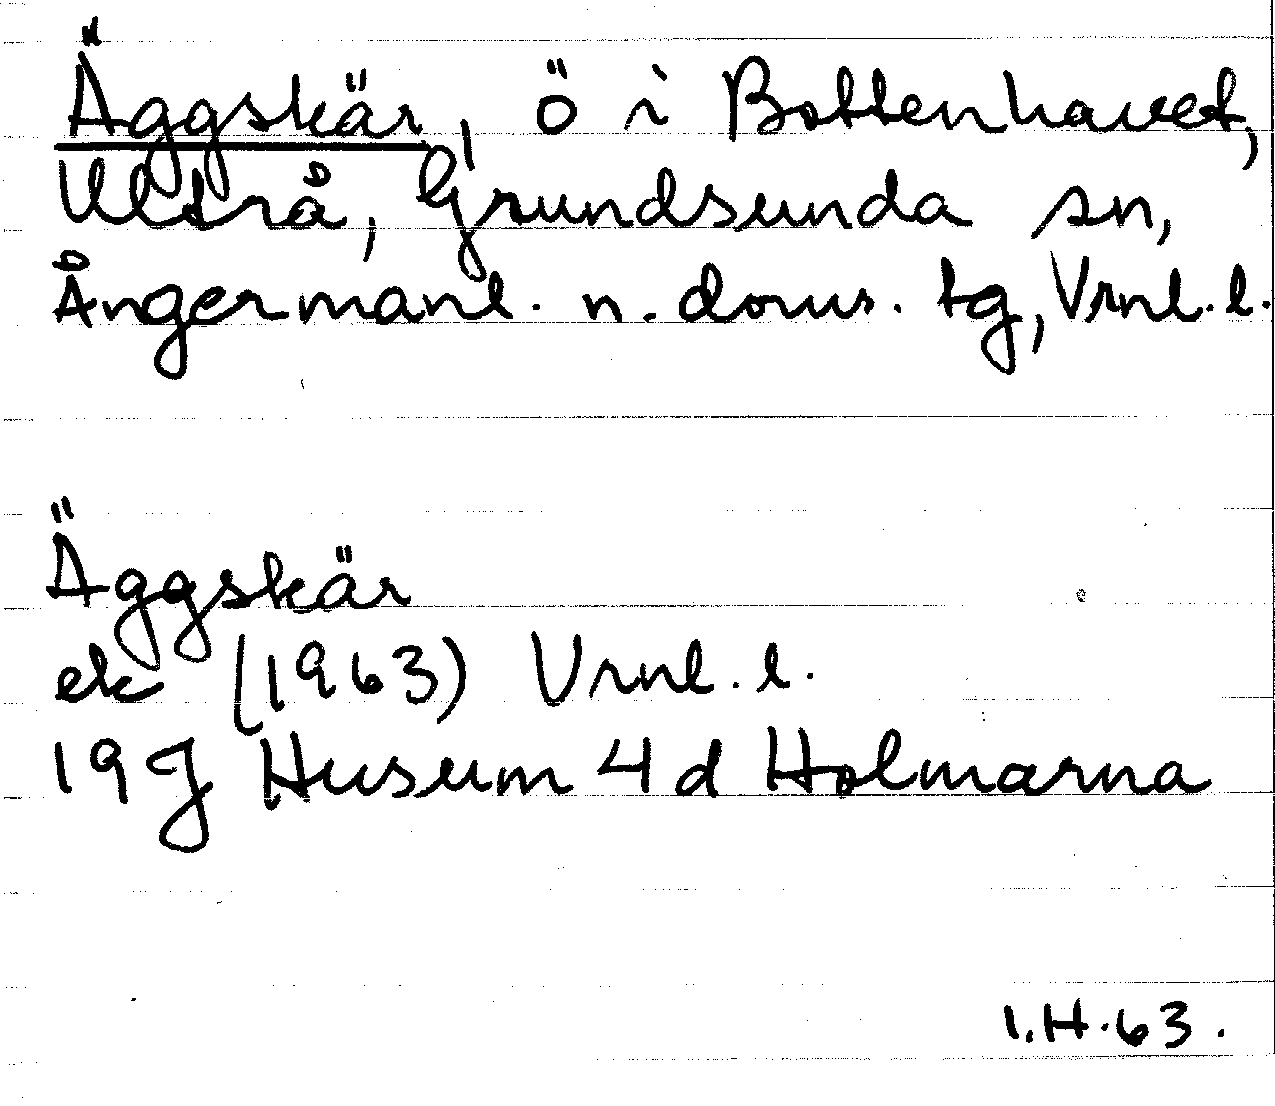 Äggskär, ö i Bottenhavet,
Ultrå, Grundsunda sn,
Ångermanl. n. doms. tg, Vrnl. l.
Äggskär
ek (1963) Vrnl. l.
19J Husum 4d Holmarna
I.H.63.